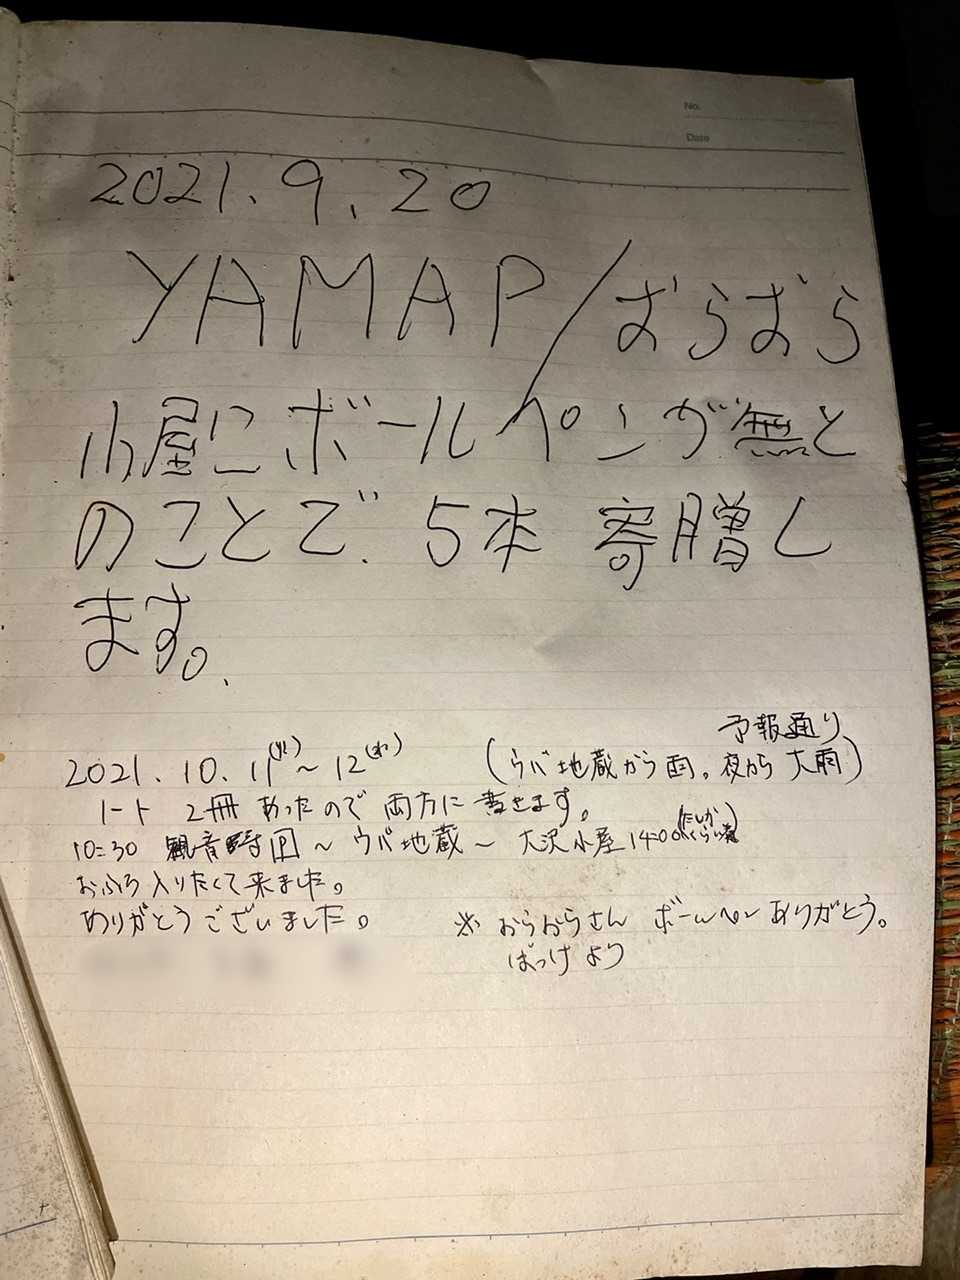 No.
Date
2021.9.20
YAMAP/おらおら
小屋にボールペンが無と
のことで、5本 寄贈し
ます。
予報通り
2021.10.11 ～12 (ウバ地蔵から雨。夜から大雨)
ノート 2冊 あったので 両方に書きます。
10:30 観音 ～ ウバ地蔵 ～ 大沢小屋 14:00
おふろ入りたくて来ました。
ありがとうございました。 ※ おらおらさん ボールペンありがとう。
ばっけより